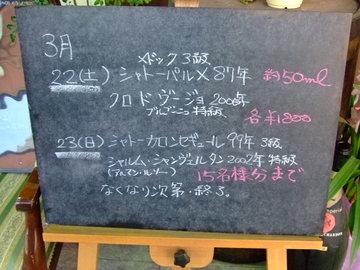 3月
メドック 3級
22(土) シャトーパルメ 87年 約50ml
クロ ドヴージョ 2000年
ブルゴーニュ特級 各¥1800
23(日) シャトーカロンセギュール 99年 3級
シャルム・シャンヴェルタン 2002年 特級
(アルマン・ルソー) 15名様分まで
なくなり次第・終了。